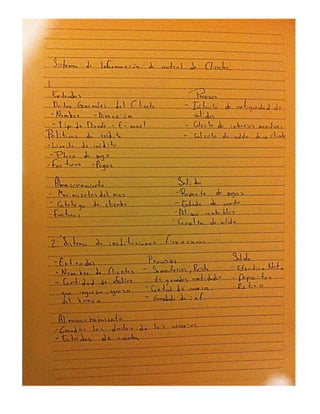 Sistema de Información de control de Clientes
1.
Entradas Procesos
- Datos Generales del Cliente - Cálculo de antigüedad de
- Nombre - Dirección saldos
- Tipo de Cliente - E-mail - Cálculo de intereses moratorios
Políticas de crédito - Cálculo de saldo de cliente
- Límite de crédito
- Plazo de pago
- Facturas - Pagos
Almacenamiento Salida
- Movimientos del mes - Reporte de pagos
- Catálogo de clientes - Estado de cuenta
- Facturas - Pólizas contables
- Consulta de saldo
2. Sistema de instituciones financieras
- Entradas Procesos Salida
- Nombre de Clientes - Sumatorias, Resta - Efectivo Neto
- Cantidad de efectivo de grandes cantidades - Depósitos
que ingresa, egresa - Control de - Retiro
del banco
Almacenamiento
- Guardar los datos de los usuarios
- Estados de cuenta